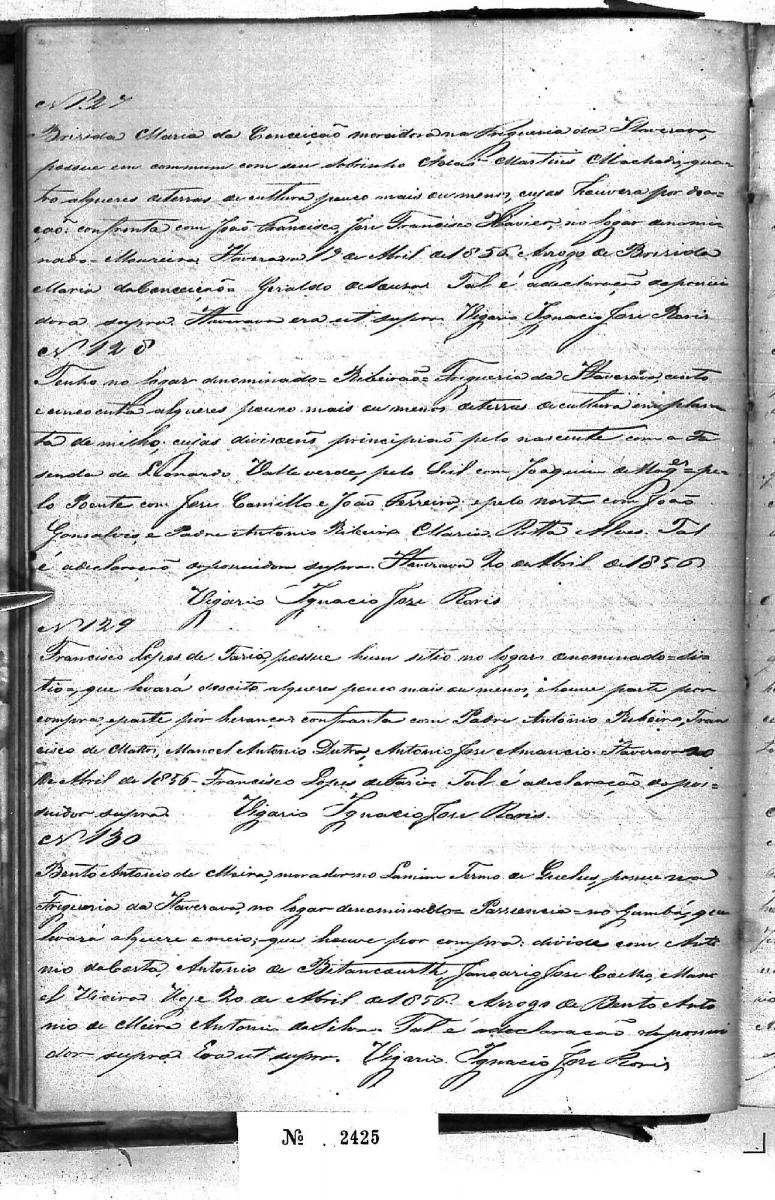 N 127
Brisida Maria da Conceição moradora na Frigueria da Itaverava,
possue em commum com seu sobrinho Martins Machado, qua-
tro alqueres de terras de cultura pouco mais ou menos, cujas houvera por doa-
ção: confronta com João Francisco, Jose Francisco Xavier, no logar denomi-
nado = Moureira. Itaverava 19 de Abril de 1856. Arrogo de Brisida
Maria da Conceição Geraldo de Sousa. Tal é a declaração da possui-
dora supra. Itaverava era ut supra. Vigario Ignacio Jose
N 128
Tenho no logar denominado = Ribeirão = Frigueria da Itaverava, cento
e cincoenta alqueres pouco mais ou menos de terras de cultura em plan-
ta de milho; cujas divisoens principião pelo nascente com a Fa-
senda de Leonardo Valleverde, pelo Sul com Joaquim de Mages pe-
lo Poente com Jose Camillo e João Ferreira; e pelo norte com João
Gonsalves, e Padre Antonio Ribeiro. Maria Ritta Alves. Tal
é a declaração do possuidor supra. Itaverava 20 de Abril de 1856.
Vigario Ignacio Jose
N 129
Francisco Lopes de Faria, possue hum sitio no logar denominado = Si-
tio =, que levará desoito alqueres pouco mais ou menos, e houve parte por
compra, e parte por herança: confronta com Padre Antonio Ribeiro, Fran-
cisco de Mattos, Manoel Antonio Dutra, Antonio Jose Amancio. Itaverava 20
de Abril de 1856. Francisco Lopes de Faria. Tal é a declaração do pos-
suidor supra. Vigario Ignacio Jose
N 130
Bento Antonio de Meira, morador no Lamim Termo de Quelus, possue na
Frigueria da Itaverava, no logar denominado = Passiencia = no Gambá, que
levará alquere e meio; que houve por compra: divide com Anto-
nio da Costa, Antonio de Bitancourth, Jose Coelho, Mano-
el Vieira. Hoje 20 de Abril de 1856. Arrogo de Bento Anto-
nio de Meira Antonio da Silva. Tal é a declaração do possui-
dor supra. Era ut supra. Vigario Ignacio Jose
№ 2425